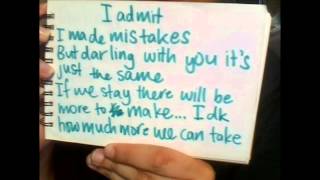 I admit
I made mistakes
But darling with you it's
just the same
If we stay there will be
more to make... Idk
how much more we can take